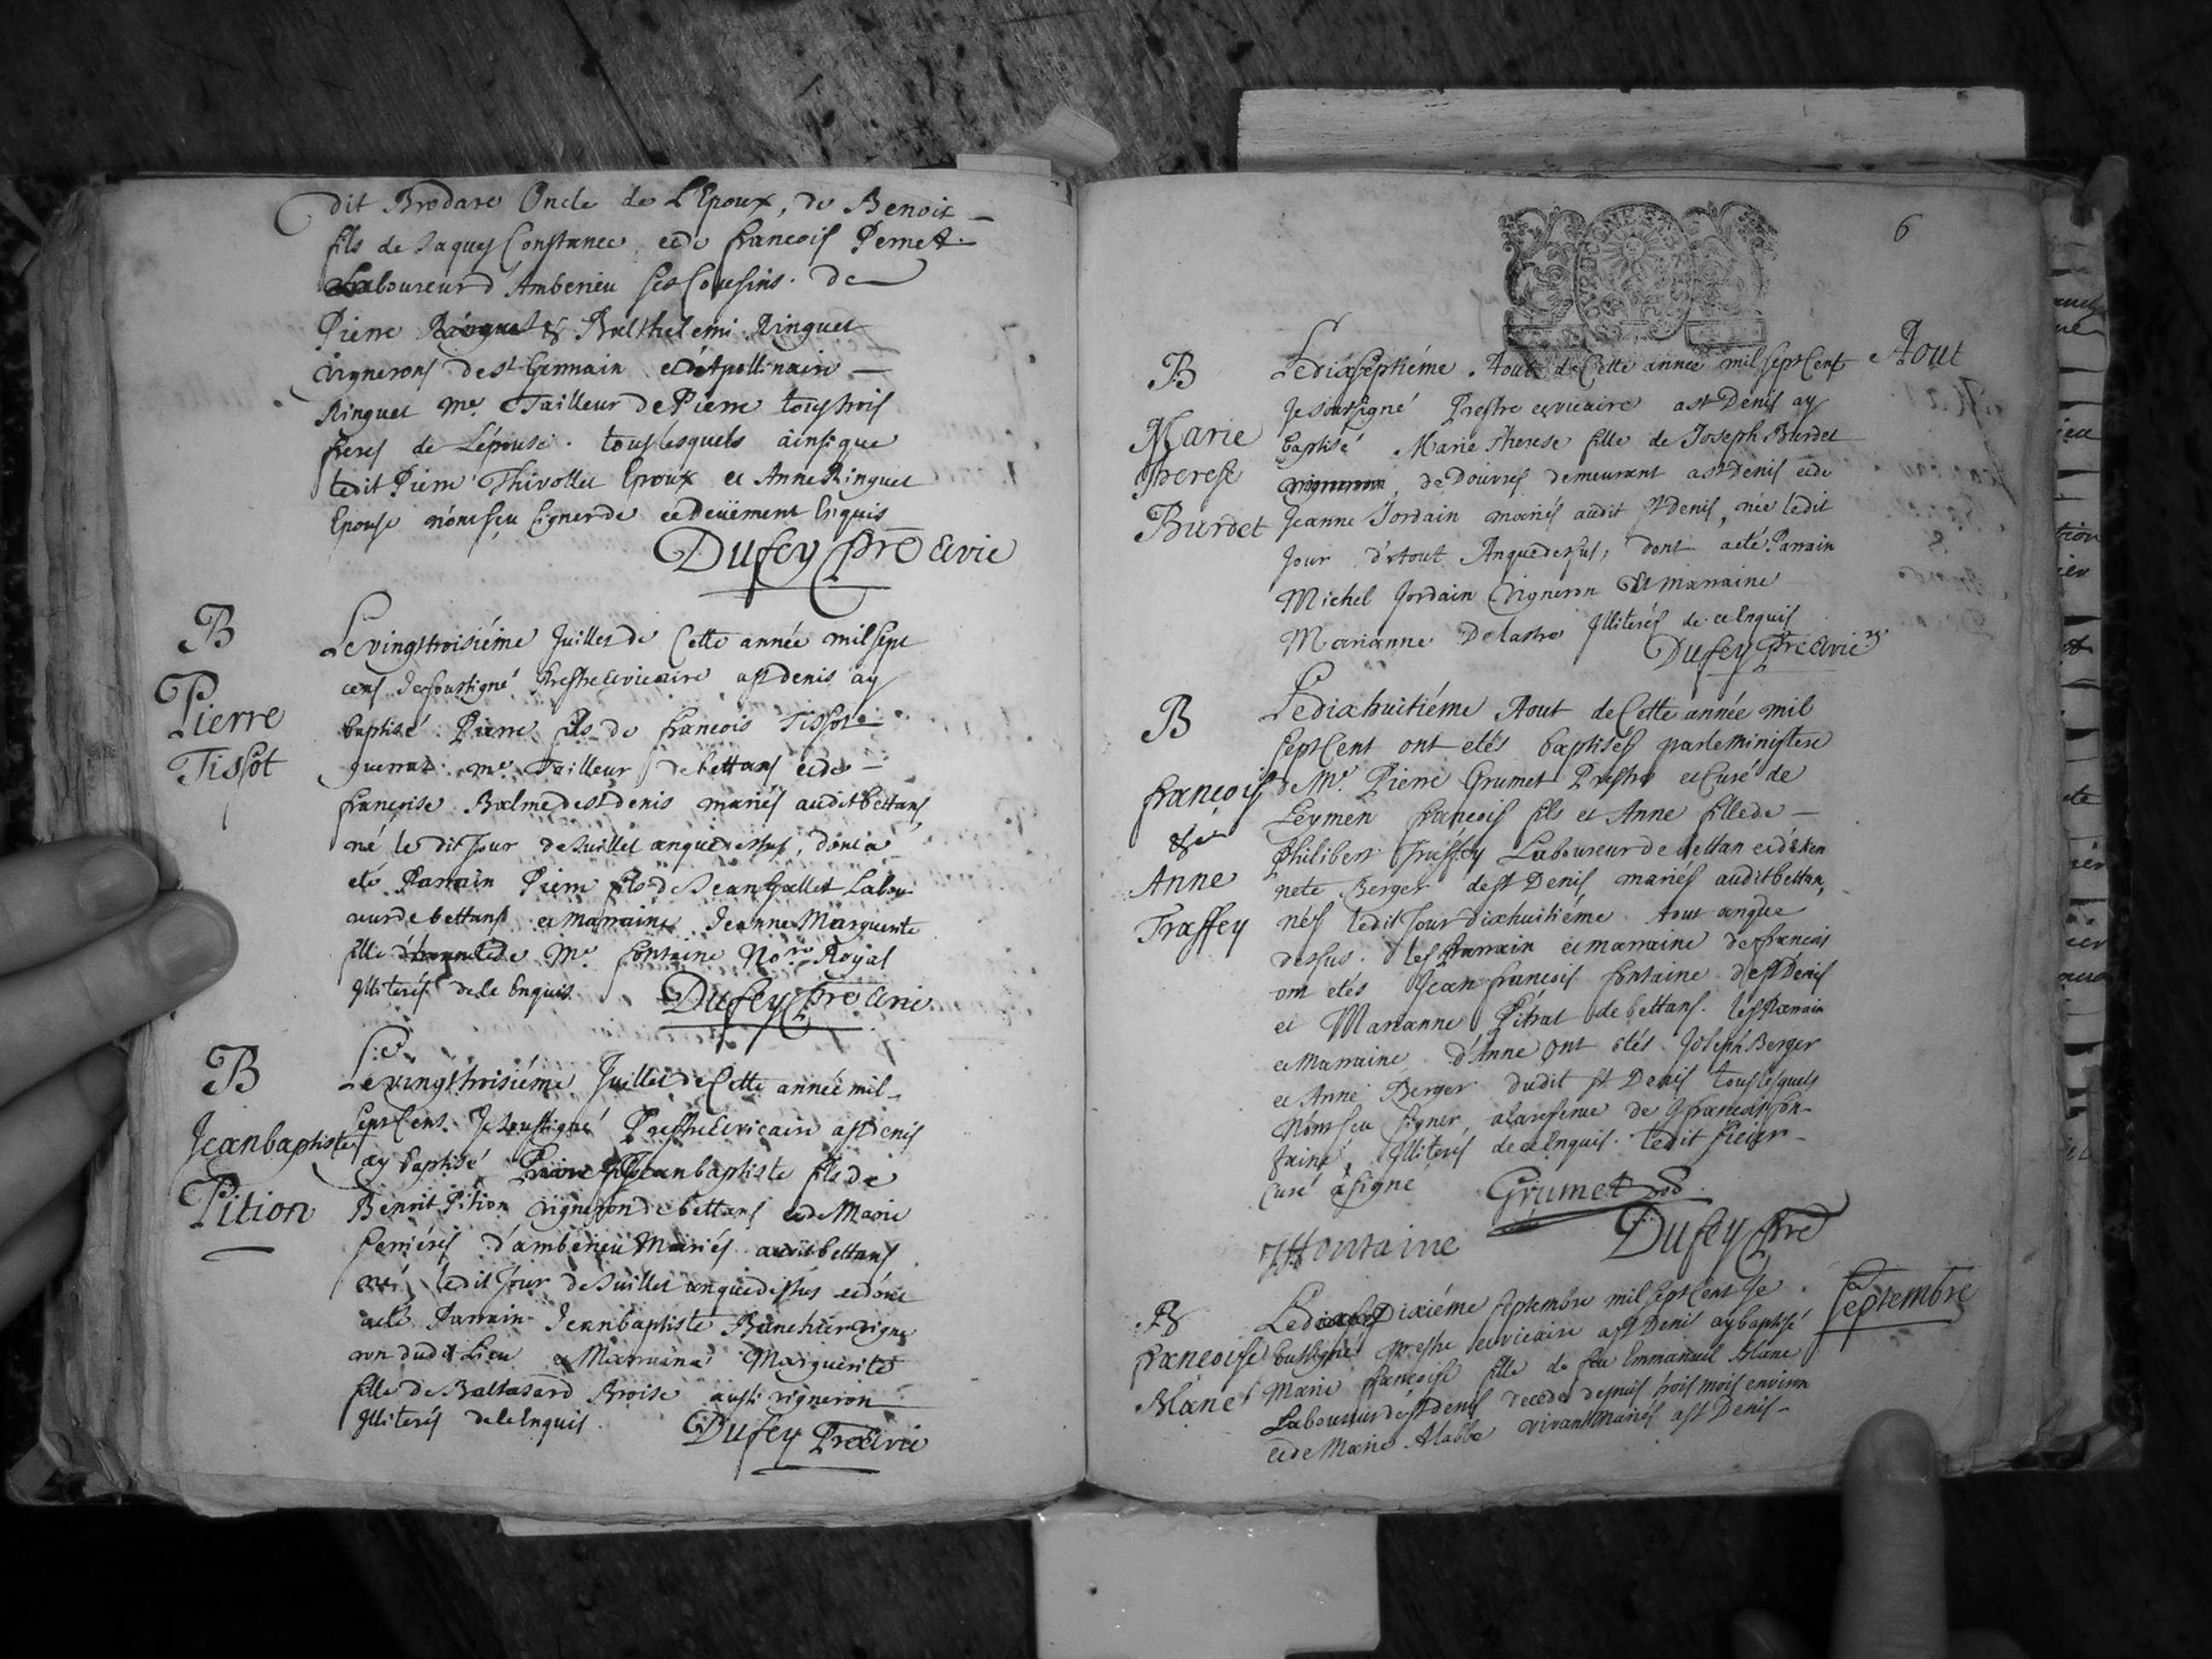 dit Brodare Oncle de L'Epoux, de Benoit
fils de Jaques Constance, et de francois Pernet
Laboureur d'Amberieu ses Cousins. de
Pierre & Balthelemi Ringuet
vignerons de st Germain et d'Apollinaire
Ringuet me. Tailleur de Pierre tous trois
freres de L'épouse. tous lesquels ainsi que
ledit Pierre Thivollet Epoux et Anne Ringuet
Epouse n'ont sçu signer de ce Deüement Enquis
Dufey pre & vic
B
Pierre
Tissot
Le vingt troisiéme Juillet de Cette année mil sept
cens Je soussigné Prestre & vicaire a st denis ay
baptisé Pierre fils de francois Tissot
guerraz me. Tailleur de bettans et de
françoise Balme de st denis mariés audit bettans,
né le dit Jour de Juillet an que dessus, dont a
eté Parrain Pierre fils de Jean Gallet Labou
reur de bettans et Marraine Jeanne Marguerite
fille de Me. fontaine Nore. Royal
Illiterés de ce Enquis. Dufey pre & vic
B
Jeanbaptiste
Pition
Le vingt troisiéme Juillet de Cette année mil
sept Cens Je soussigné Prestre & vicaire a st Denis
ay baptisé Jeanbaptiste fils de
Benoit Pition vigneron de bettans et de Marie
ferrieres d'amberieu Mariés audit bettans
né ledit Jour de Juillet an que dessus et dont
a eté Parrain Jeanbaptiste Banchier vigne
ron dudit Lieu et Marraine Marguerite
fille de Baltasard Broise aussi vigneron
Illiterés de ce Enquis. Dufey Pre & vic
6
Aout
B
Marie
Therese
Burdet
Le dixseptiéme Aout de Cette année mil sept Cent
Je soussigné Prestre et vicaire a st Denis ay
baptisé Marie Therese fille de Joseph Burdet
vigneron de Douvres demeurant a st Denis et de
Jeanne Jordain mariés audit st Denis, née ledit
Jour d'Aout An que dessus, dont a eté Parrain
Michel Jordain vigneron Et marraine
Marianne Delastre Illiterés de ce Enquis
Dufey Pre & vic
B
françois
&
Anne
Traffey
Le dixhuitiéme Aout de Cette année mil
sept Cent ont etés baptisés par le Ministere
de Mr. Pierre Grumet Prestre et Curé de
Leymen françois fils et Anne fille de
Philibert Traffey Laboureur de bettan et d'Eten
nete Berger de st Denis mariés audit bettan,
nés ledit Jour dixhuitiéme Aout an que
dessus. les Parrain et marraine de francois
ont etés Jean françois fontaine de st Denis
et Marianne Pitrat de bettans. les Parrain
et Marraine d'Anne ont etés Joseph Berger
et Anne Berger dudit st Denis tous lesquels
N'ont sçu signer, a la reserve de francois fon-
taine, Illiterés de ce Enquis. ledit sieur
Curé a signé Grumet
fontaine Dufey Pre
Septembre
B
françoise
Alane
Le Dixiéme septembre mil sept Cent Je
soussigné prestre et vicaire a st Denis ay baptisé
Marie françoise fille de feu Emmanuel Alane
Laboureur de st denis decedé depuis trois mois environ
et de Marie Alabbe vivant mariés a st Denis